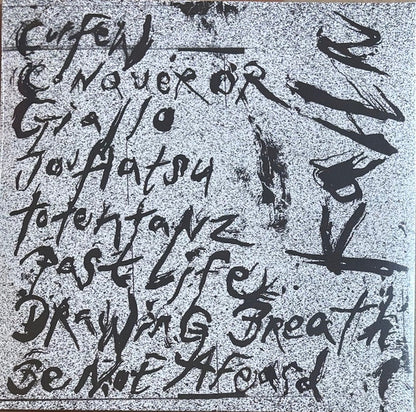 CurfeW
ConquerOR
Giallo
JouHatsu
totentanz
Past Life
DRAWiNG BReath
Be Not Afeard